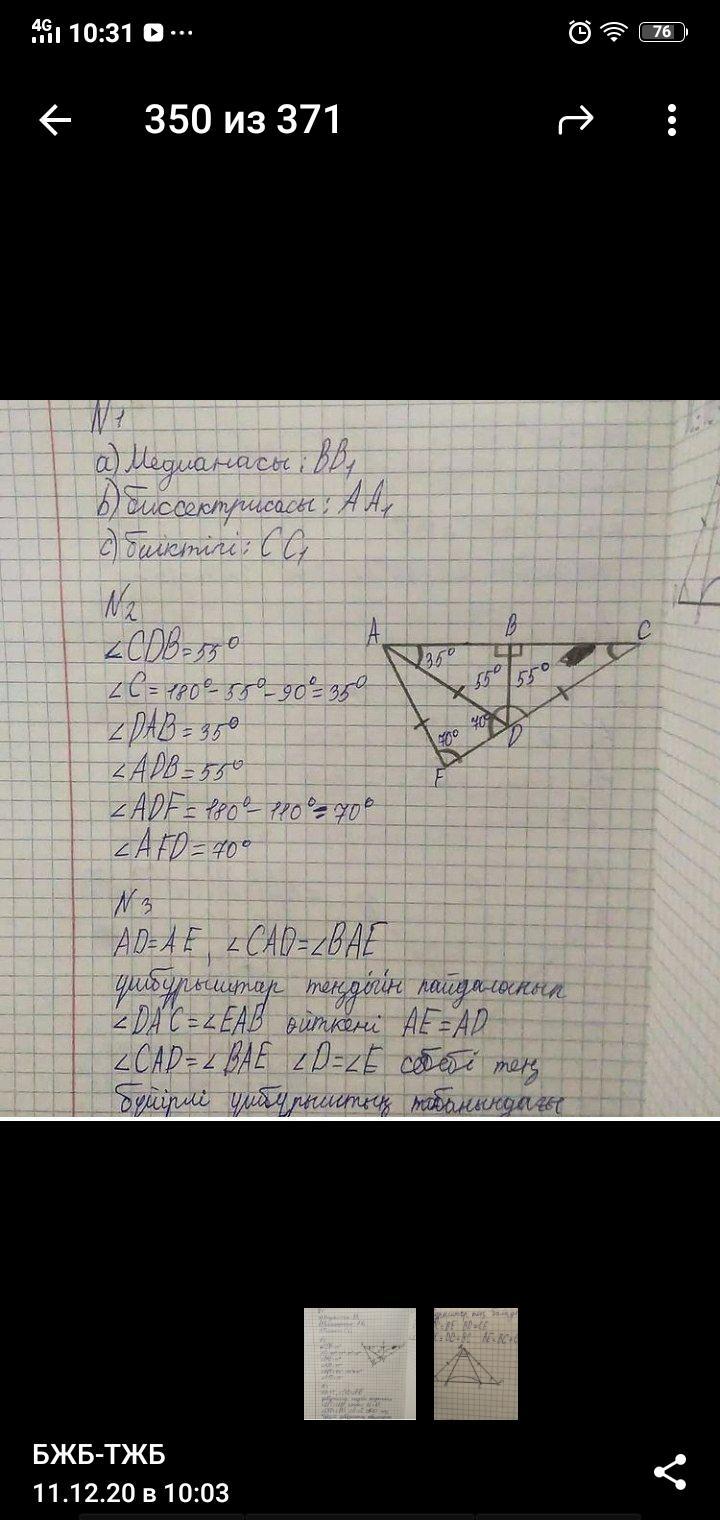 4G 10:31 76
350 из 371
N1
a) Медианасы: BB₁
b) биссектрисасы: AA₁
c) биіктігі: CC₁
N2
∠CDB=55°
∠C=180°-55°-90°=35°
∠DAB=35°
∠ADB=55°
∠ADF=180°-110°=70°
∠AFD=70°
A B C
35° 55° 55°
70° 70° D
F
N3
AD=AE, ∠CAD=∠BAE
үшбұрыштар теңдігін пайдаланып
∠DAC=∠EAB өйткені AE=AD
∠CAD=∠BAE ∠D=∠E себебі тең
бүйірлі үшбұрыштың табанындағы
БЖБ-ТЖБ
11.12.20 в 10:03